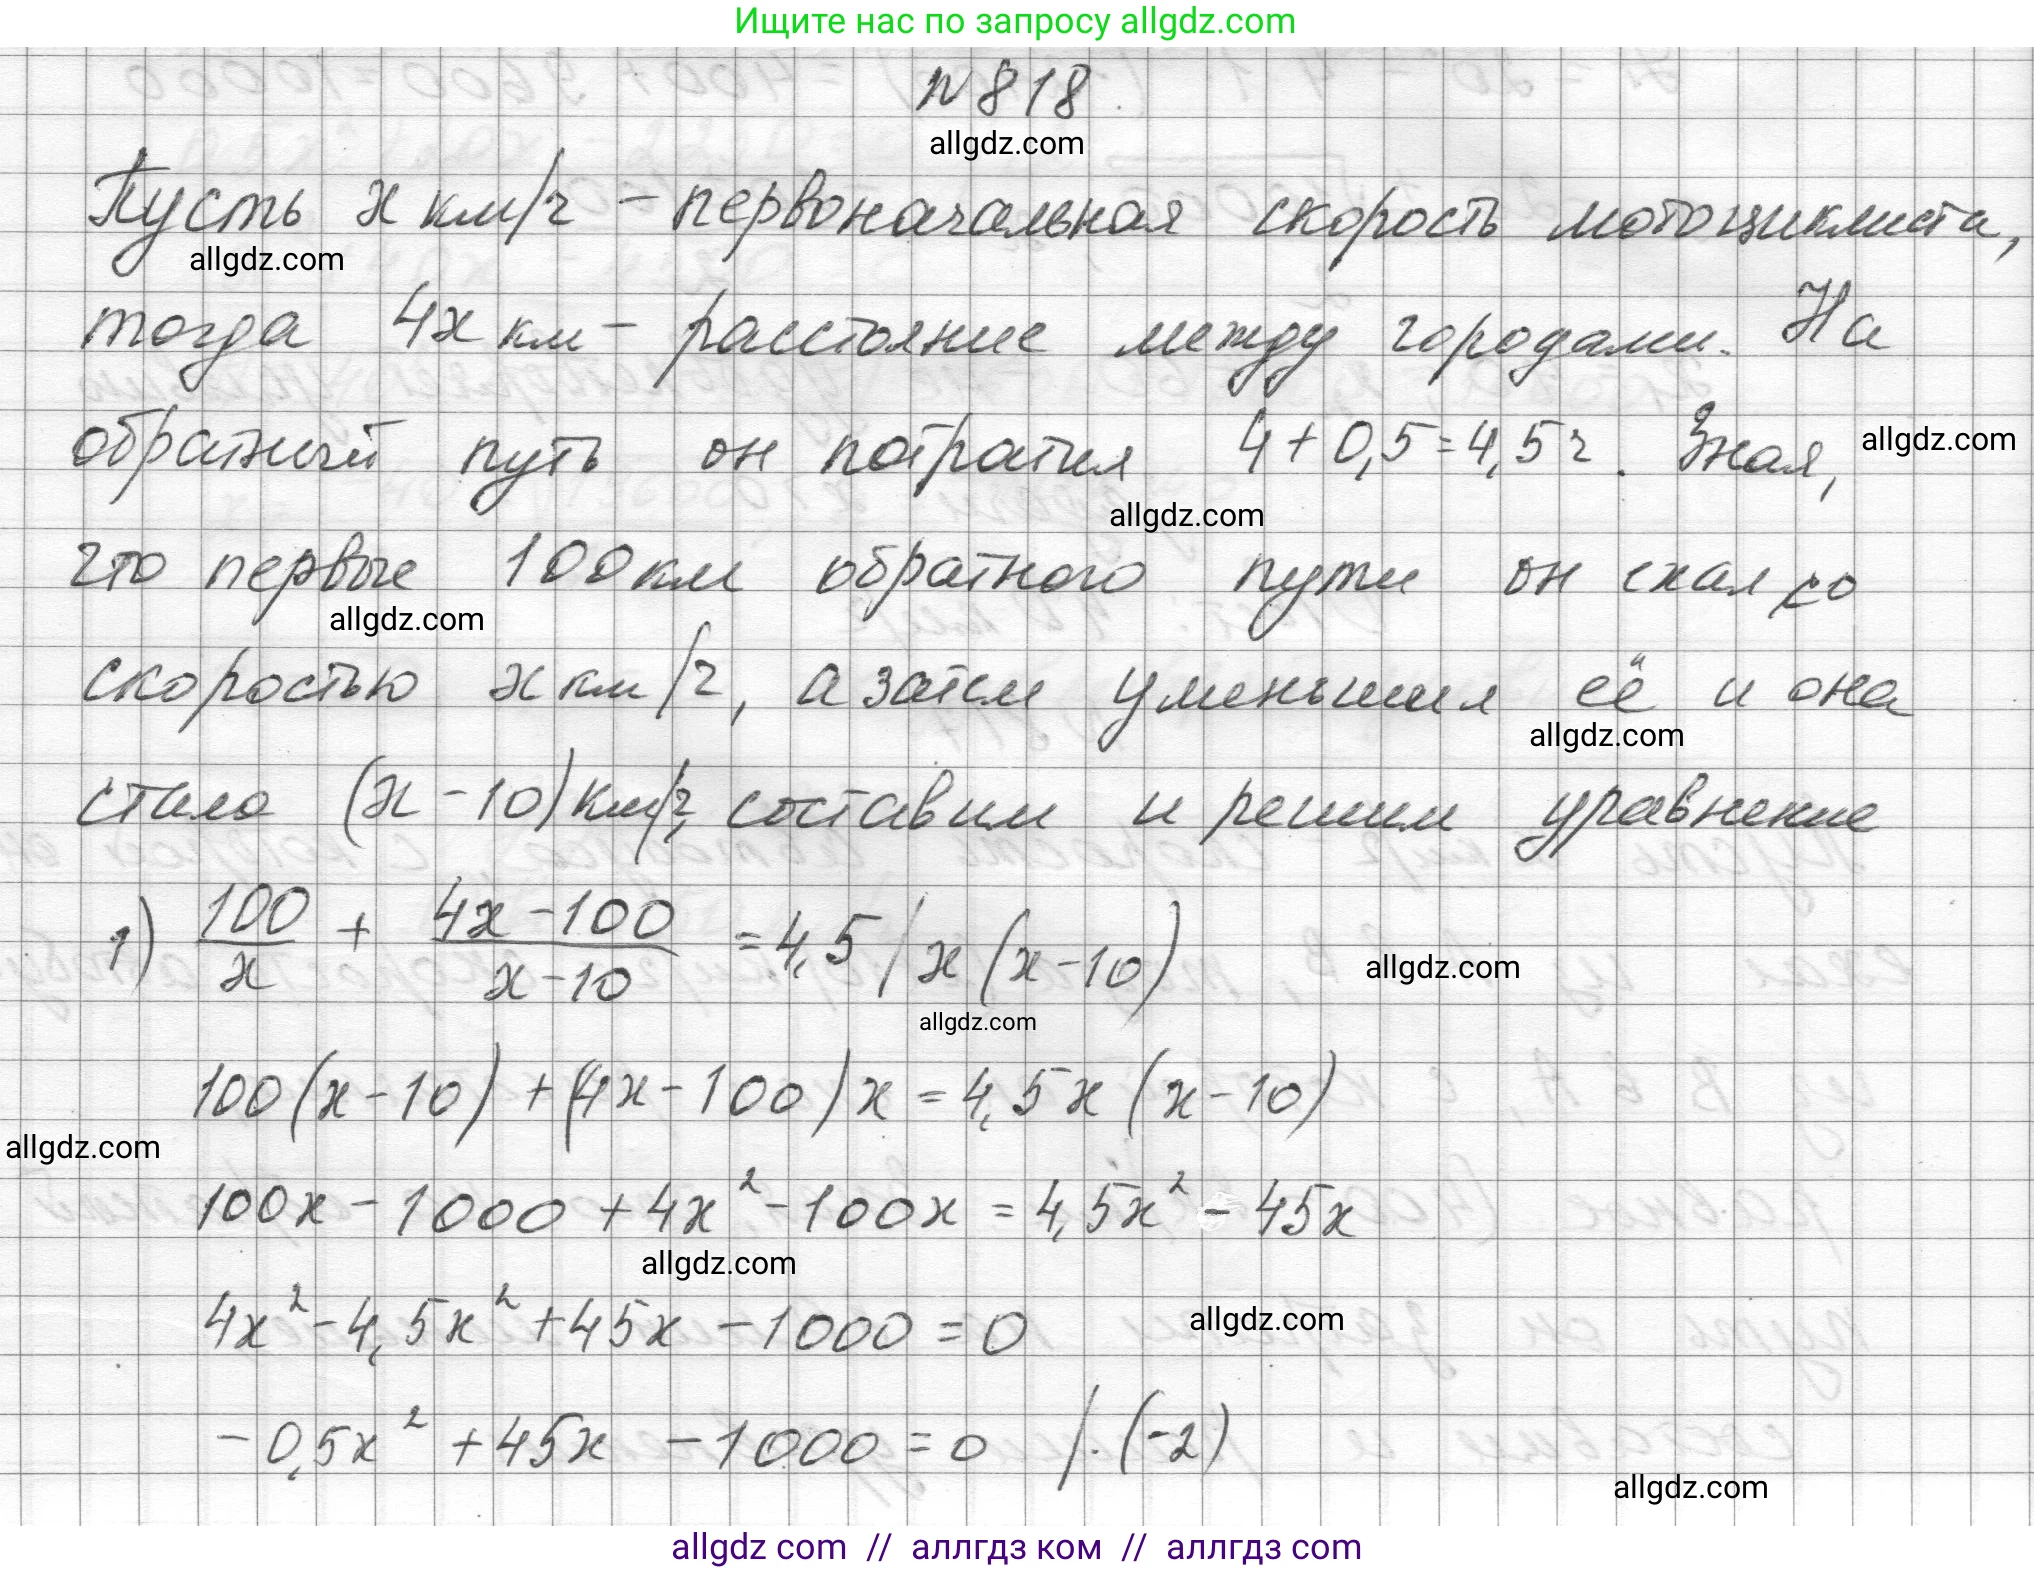 Ищите нас по запросу allgdz.com
N818
allgdz.com
Пусть x км/ч - первоначальная скорость мотоциклиста,
allgdz.com
тогда 4x км - расстояние между городами. На
обратный путь он потратил 4 + 0,5 = 4,5 ч. Зная,
allgdz.com
allgdz.com
что первые 100 км обратного пути он ехал со
allgdz.com
скоростью x км/ч, а затем уменьшил её и она
allgdz.com
стала (x - 10) км/ч, составим и решим уравнение
1) 100/x + (4x - 100)/(x - 10) = 4,5 | x (x - 10)
allgdz.com
allgdz.com
100(x - 10) + (4x - 100)x = 4,5x (x - 10)
allgdz.com
100x - 1000 + 4x² - 100x = 4,5x² - 45x
allgdz.com
4x² - 4,5x² + 45x - 1000 = 0
allgdz.com
- 0,5x² + 45x - 1000 = 0 | · (-2)
allgdz.com
allgdz com // аллгдз ком // аллгдз com